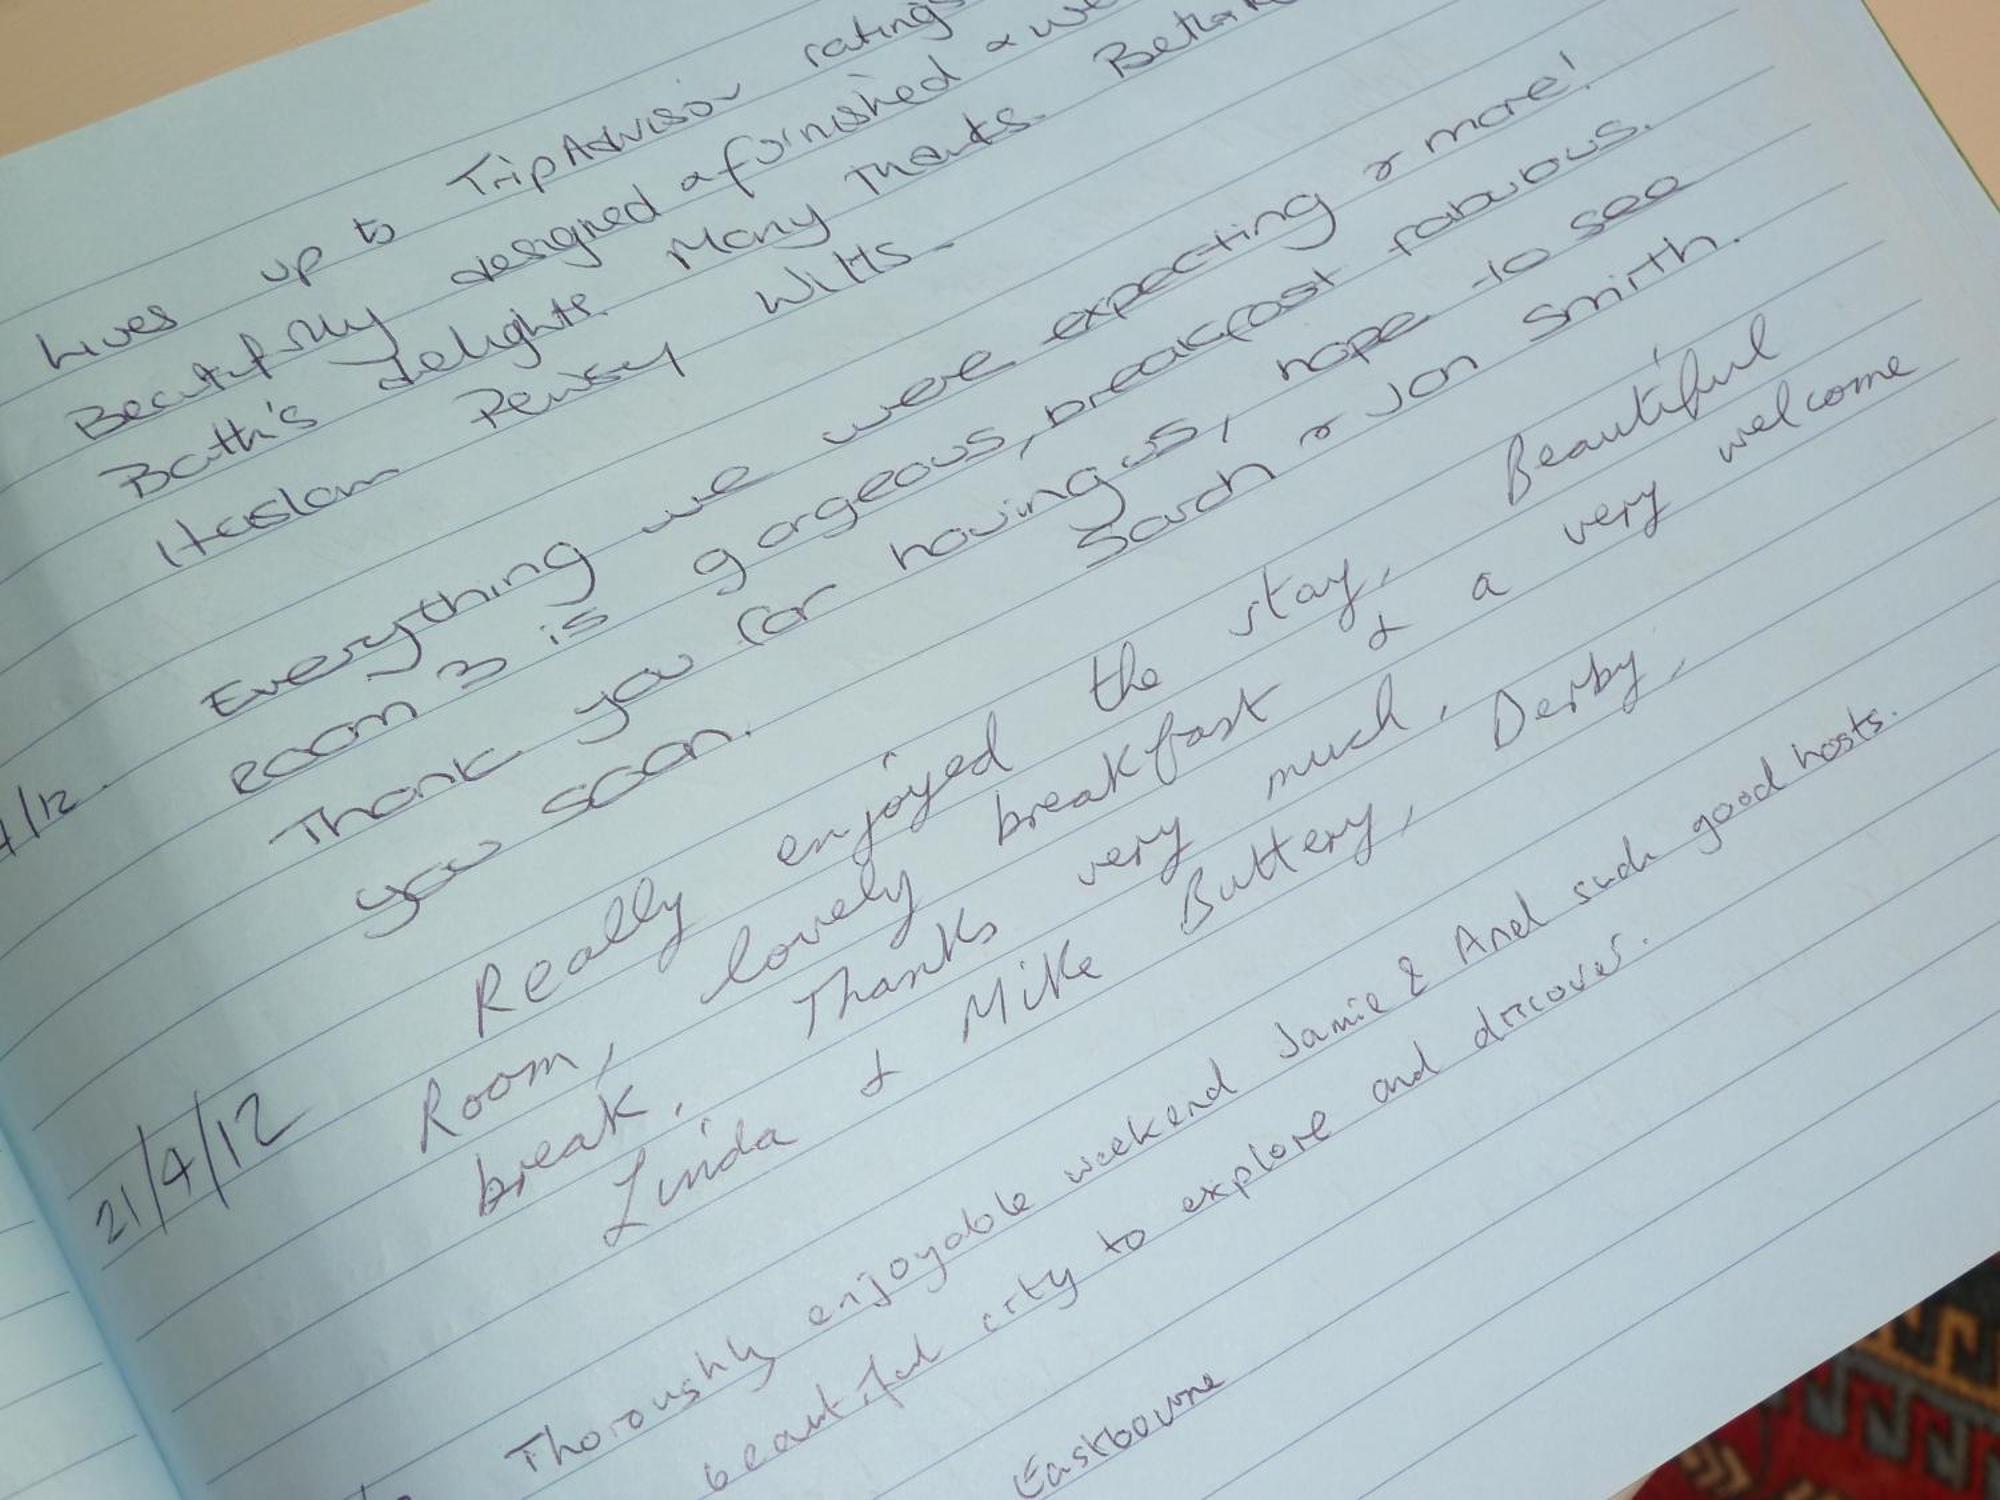 Lives up to TripAdvisor ratings
Beautifully designed & furnished & we
Bath's delights. Many Thanks. Beth
Haslam Pewsey Wilts.
/12. Everything we were expecting & more!
Room 3 is gorgeous, breakfast fabulous.
Thank you for having us, hope to see
you soon. Sarah & Jon Smirth.
21/4/12 Really enjoyed the stay, Beautiful
Room, lovely breakfast & a very welcome
break. Thanks very much,
Linda & Mike Buttery, Derby,
Thoroughly enjoyable weekend Jamie & And such good hosts.
beautiful city to explore and discover.
Eastbourne